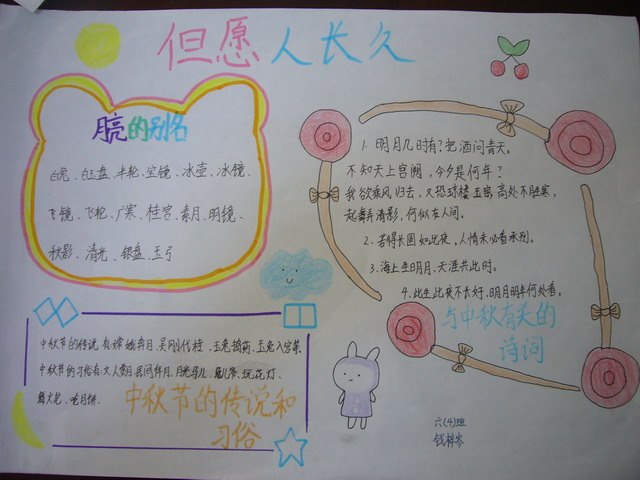 但愿人长久
月亮的别名
白兔、白玉盘、半轮、宝镜、冰壶、冰镜、
飞镜、飞轮、广寒、桂宫、素月、明镜、
秋影、清光、银盘、玉弓
1. 明月几时有?把酒问青天。
不知天上宫阙,今夕是何年?
我欲乘风归去,又恐琼楼玉宇,高处不胜寒,
起舞弄清影,何似在人间。
2、若得长圆如此夜,人情未必看承别。
3、海上生明月,天涯共此时。
4、此生此夜不长好,明月明年何处看。
与中秋有关的
诗词
中秋节的传说有嫦娥奔月、吴刚伐桂、玉兔捣药、玉兔入宫
中秋节的习俗有文人赏月、民间拜月、月光马儿、兔儿爷、玩花灯、
舞火龙、吃月饼。
中秋节的传说和
习俗
六(4)班
钱梓岑